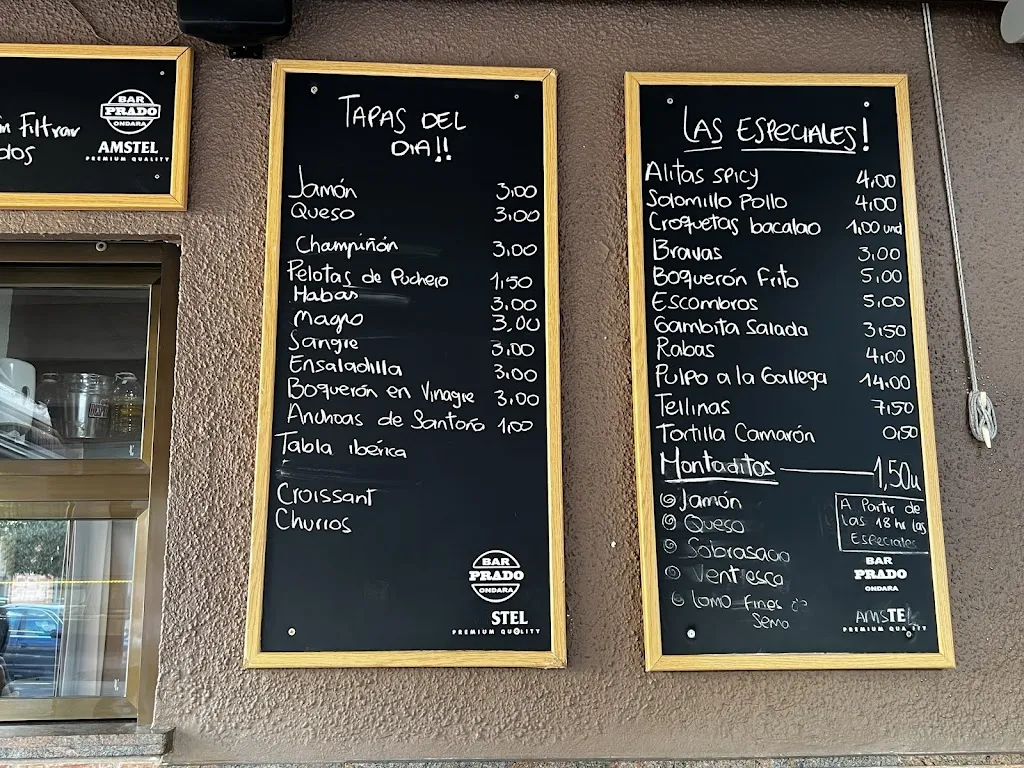 Filtrar
dos
BAR
PRADO
ONDARA
AMSTEL
PREMIUM QUALITY
TAPAS DEL
DIA!!
Jamón 3,00
Queso 3,00
Champiñón 3,00
Pelotas de Puchero 1,50
Habas 3,00
Magro 3,00
Sangre 3,00
Ensaladilla 3,00
Boquerón en Vinagre 3,00
Anchoas de Santoro 1,00
Tabla ibérica
Croissant
Churros
BAR
PRADO
ONDARA
STEL
PREMIUM QUALITY
LAS ESPECIALES!
Alitas spicy 4,00
Solomillo Pollo 4,00
Croquetas bacalao 1,00 und
Bravas 3,00
Boquerón Frito 5,00
Escombros 5,00
Gambita Salada 3,50
Rabas 4,00
Pulpo a la Gallega 14,00
Tellinas 7,50
Tortilla Camarón 0,50
Montaditos 1,50u
Jamón
Queso
Sobrasada
Ventresca
Lomo Fines de
Sema
A Partir de
las 18 hr las
Especiales
BAR
PRADO
ONDARA
AMSTEL
PREMIUM QUALITY